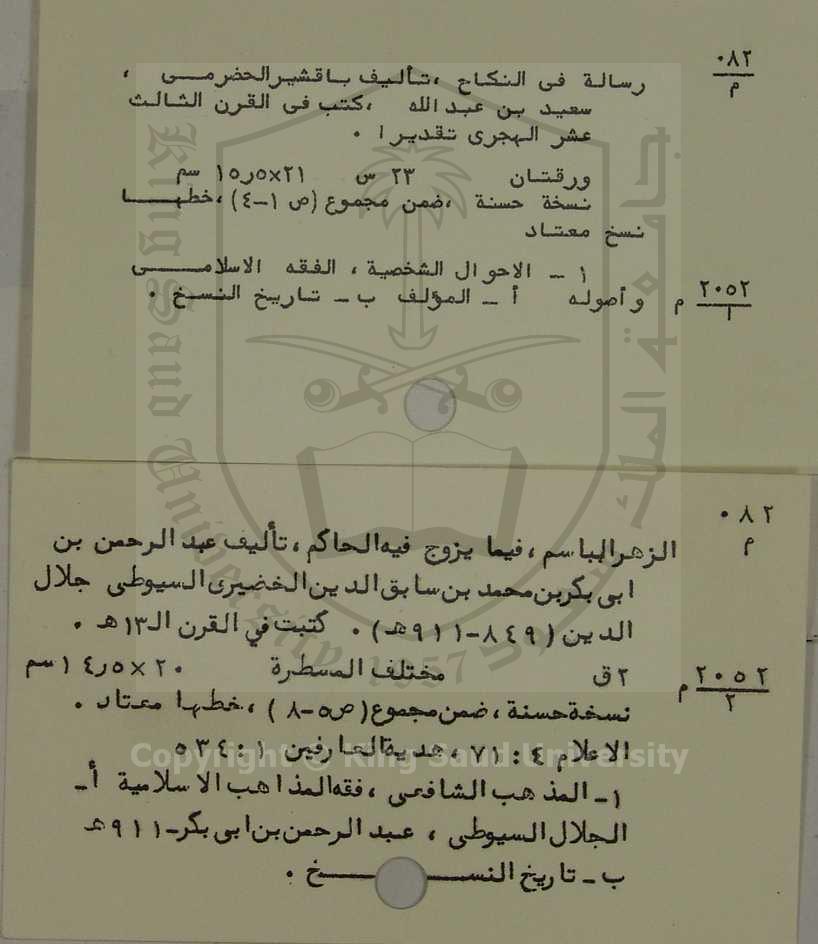 ٠٨٢
م
رسالة فى النكاح ،تأليف باقشير الحضرمـــى ،
سعيد بن عبد الله ،كتب فى القرن الثالث
عشر الهجرى تقديرا ٠
ورقتان ٢٣ س ٢١×٥ر١٥ سم
نسخة حسنة ،ضمن مجموع (ص ١-٤) ،خطهـــا
نسخ معتاد
١ - الاحوال الشخصية ، الفقه الاسلامـــى
وأصوله أ - المؤلف ب - تاريخ النسخ ٠
٢٠٥٢ م
١
٠٨٢
م
الزهر الباسم ،فيما يزوج فيه الحاكم ،تأليف عبد الرحمن بن
ابى بكر بن محمد بن سابق الدين الخضيرى السيوطى جلال
الدين (٨٤٩-٩١١هـ) ٠ كتبت في القرن الـ١٣هـ ٠
٢ق مختلف المسطرة ٢٠×٥ر١٤سم
٢٠٥٢ م
٢
نسخة حسنة ،ضمن مجموع (ص٥-٨) ،خطها معتاد ٠
الاعلام ٤ : ٧١ ،هدية العارفين ١ : ٥٣٤
١- المذهب الشافعى ،فقه المذاهب الاسلامية أ-
الجلال السيوطى ، عبد الرحمن بن ابى بكر-٩١١هـ
ب - تاريخ النســـــخ ٠
King Saud University
جامعة الملك سعود
1957
Copyright © King Saud University